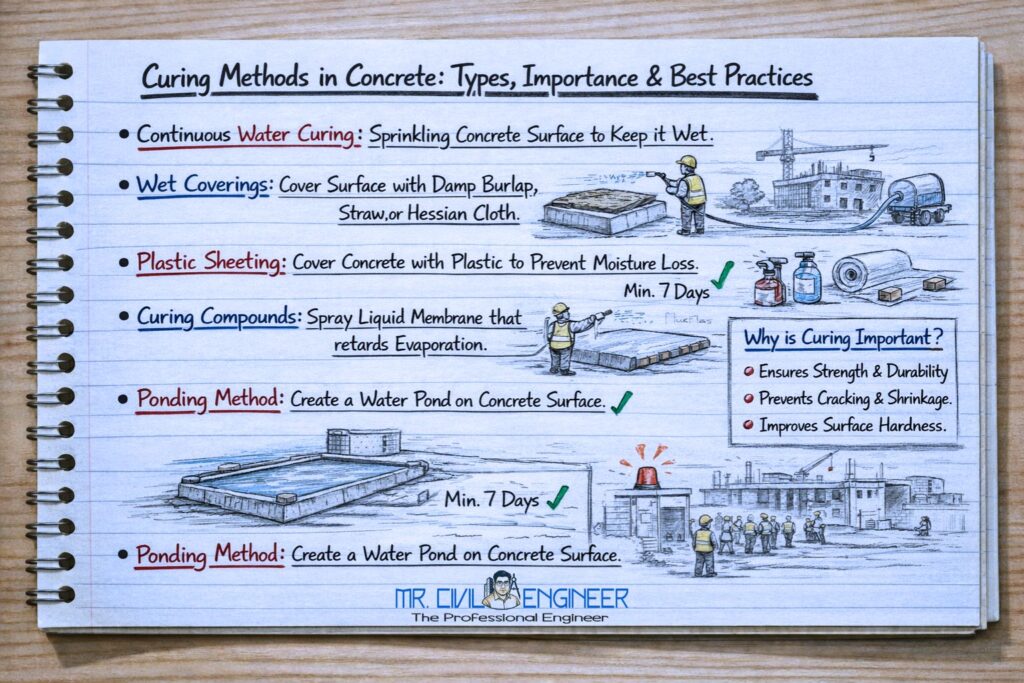 Curing Methods in Concrete: Types, Importance & Best Practices
• Continuous Water Curing: Sprinkling Concrete Surface to Keep it Wet.
• Wet Coverings: Cover Surface with Damp Burlap,
Straw, or Hessian Cloth.
• Plastic Sheeting: Cover Concrete with Plastic to Prevent Moisture Loss.
Min. 7 Days
• Curing Compounds: Spray Liquid Membrane that
retards Evaporation.
Why is Curing Important?
Ensures Strength & Durability
Prevents Cracking & Shrinkage.
Improves Surface Hardness.
• Ponding Method: Create a Water Pond on Concrete Surface.
Min. 7 Days
• Ponding Method: Create a Water Pond on Concrete Surface.
MR. CIVIL ENGINEER
The Professional Engineer